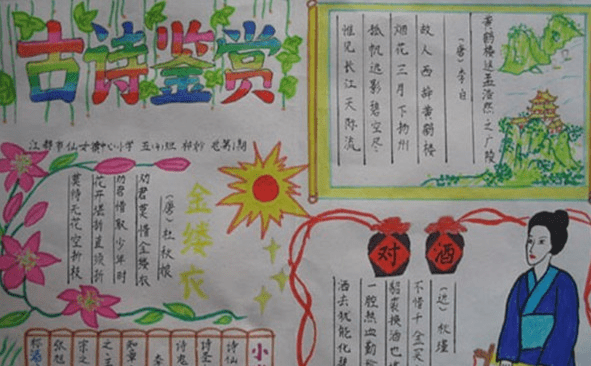 古诗鉴赏
江都市仙女镇中心小学 五(4)班
黄鹤楼送孟浩然之广陵
(唐)李白
故人西辞黄鹤楼
烟花三月下扬州
孤帆远影碧空尽
惟见长江天际流
金缕衣
(唐)杜秋娘
劝君莫惜金缕衣
劝君惜取少年时
花开堪折直须折
莫待无花空折枝
对酒
(近)秋瑾
不惜千金买
貂裘换酒也
一腔热血勤
洒去犹能化碧
小
诗仙
诗圣
诗鬼